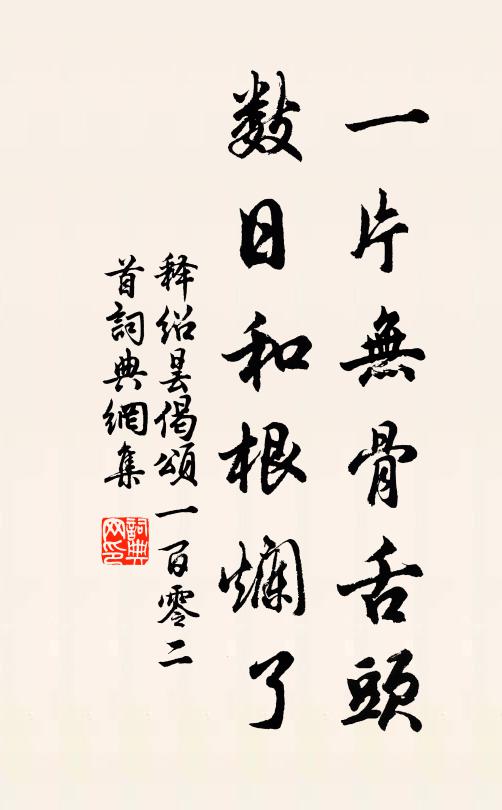 一片無骨舌頭
数日和根爛了
释绍昙偈頌一百零二
首詞典網集
詞典
网印